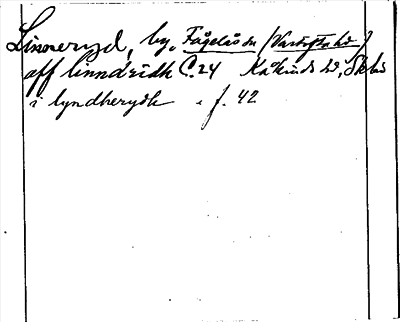 Linneryd, by, Fågelås sn (Vartofta hd)
aff linndridh C.24 Kåkinds hd, Skbs
i lyndherydh " f. 42